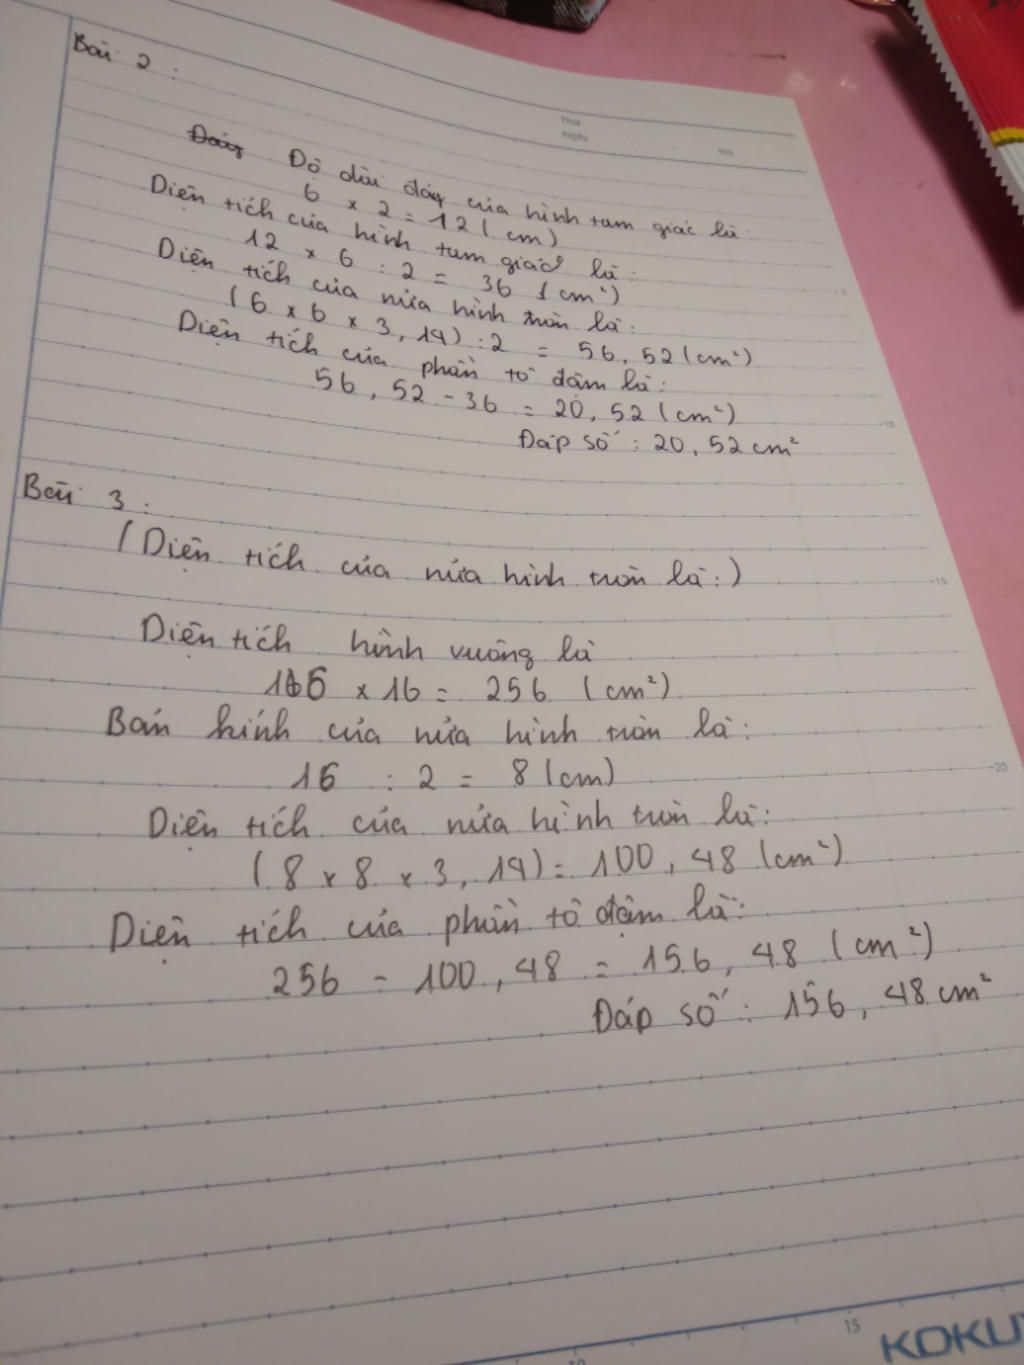 Thứ
Ngày
No.
Bài 2 :
Đáy Độ dài đáy của hình tam giác là:
6 x 2 = 12 (cm)
Diện tích của hình tam giác là:
12 x 6 : 2 = 36 (cm²)
Diện tích của nửa hình tròn là:
(6 x 6 x 3,14) : 2 = 56,52 (cm²)
Diện tích của phần tô đậm là:
56,52 - 36 = 20,52 (cm²)
Đáp số : 20,52 cm²
Bài 3 :
(Diện tích của nửa hình tròn là:)
Diện tích hình vuông là
16 x 16 = 256 (cm²)
Bán kính của nửa hình tròn là:
16 : 2 = 8 (cm)
Diện tích của nửa hình tròn là:
(8 x 8 x 3,14) = 100,48 (cm²)
Diện tích của phần tô đậm là:
256 - 100,48 = 156,48 (cm²)
Đáp số : 156,48 cm²
5
10
15
20
10
15
KOKU